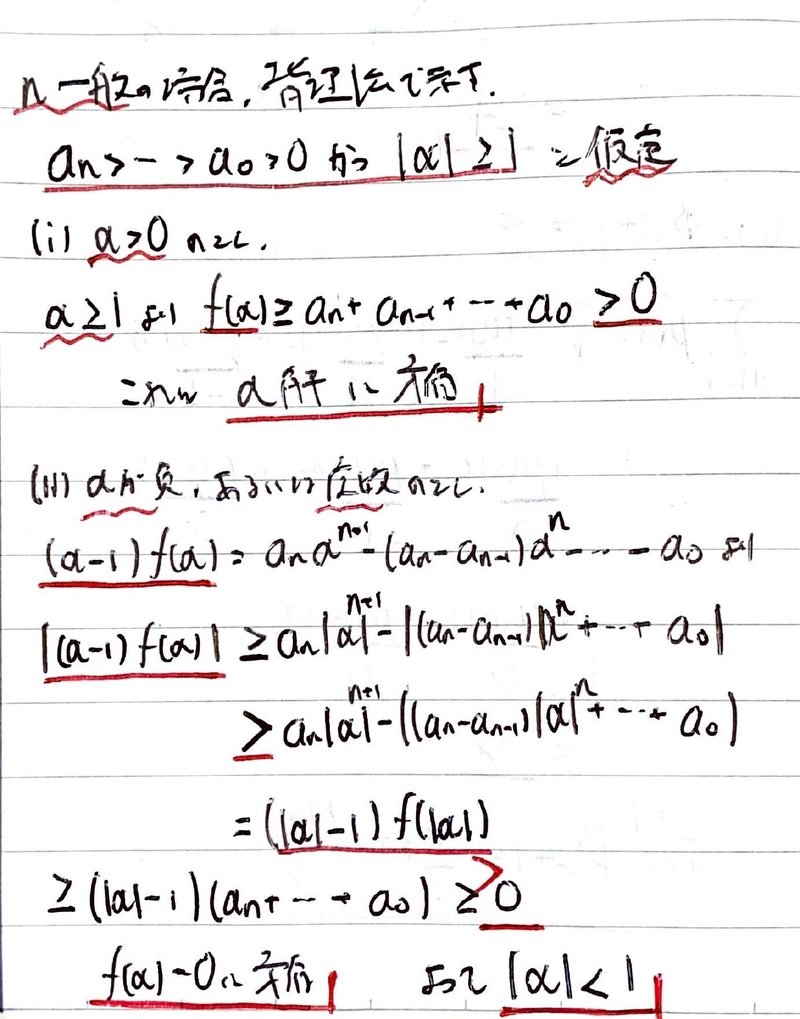 n 一般の場合, 背理法で示す.
an > … > a0 > 0 かつ |α| ≥ 1 と仮定
(i) α>0 のとし.
α≥1 より f(α) ≥ an + an-1 + … + a0 > 0
これは α 解 に 矛盾
(ii) αが負, あるいは 虚数 のとし.
(α-1) f(α) = an α^n+1 - (an - an-1)α^n - … - a0 より
|(α-1) f(α)| ≥ an|α|^n+1 - |(an - an-1)α^n + … + a0|
> an|α|^n+1 - ((an - an-1)|α|^n + … + a0)
= (|α|-1) f(|α|)
≥ (|α|-1)(an + … + a0) ≥ 0
f(α)=0に 矛盾 よって |α| < 1